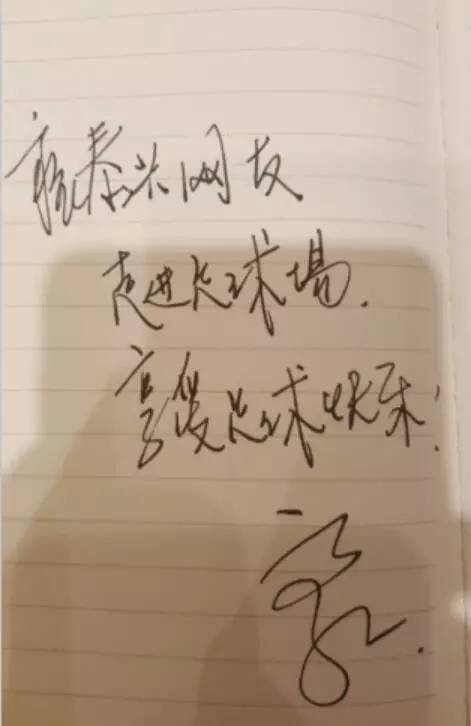 愿泰兴网友
走进足球场.
享受足球快乐!